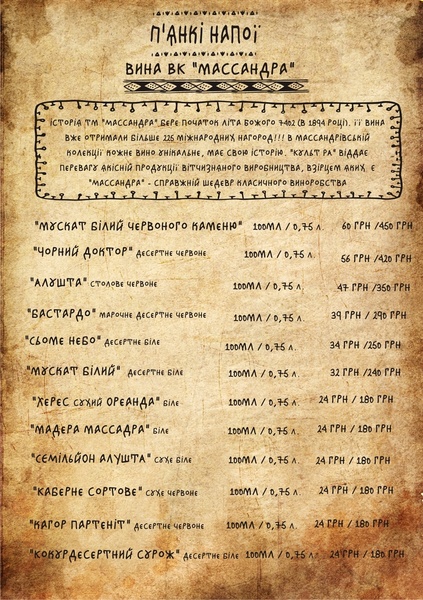 П'ЯНКІ НАПОЇ
ВИНА ВК "МАССАНДРА"
ІСТОРІЯ ТМ "МАССАНДРА" БЕРЕ ПОЧАТОК ЛІТА БОЖОГО 7402 (В 1894 РОЦІ). ЇЇ ВИНА
ВЖЕ ОТРИМАЛИ БІЛЬШЕ 225 МІЖНАРОДНИХ НАГОРОД!!! В МАССАНДРІВСЬКІЙ
КОЛЕКЦІЇ КОЖНЕ ВИНО УНІКАЛЬНЕ, МАЄ СВОЮ ІСТОРІЮ. "КУЛЬТ РА" ВІДДАЄ
ПЕРЕВАГУ ЯКІСНІЙ ПРОДУКЦІЇ ВІТЧИЗНАНОГО ВИРОБНИЦТВА, ВЗІРЦЕМ ЯКИХ Є
"МАССАНДРА" - СПРАВЖНІЙ ШЕДЕВР КЛАСИЧНОГО ВИНОРОБСТВА
"МУСКАТ БІЛИЙ ЧЕРВОНОГО КАМЕНЮ" 100МЛ / 0,75 Л. 60 ГРН /450 ГРН
"ЧОРНИЙ ДОКТОР" ДЕСЕРТНЕ ЧЕРВОНЕ 100МЛ / 0,75 Л. 56 ГРН /420 ГРН
"АЛУШТА" СТОЛОВЕ ЧЕРВОНЕ 100МЛ / 0,75 Л. 47 ГРН /350 ГРН
"БАСТАРДО" МАРОЧНЕ ДЕСЕРТНЕ ЧЕРВОНЕ 100МЛ / 0,75 Л. 39 ГРН / 290 ГРН
"СЬОМЕ НЕБО" ДЕСЕРТНЕ БІЛЕ 100МЛ / 0,75 Л. 34 ГРН /250 ГРН
"МУСКАТ БІЛИЙ" ДЕСЕРТНЕ БІЛЕ 100МЛ / 0,75 Л. 32 ГРН /240 ГРН
"ХЕРЕС СУХИЙ ОРЕАНДА" БІЛЕ 100МЛ / 0,75 Л. 24 ГРН / 180 ГРН
"МАДЕРА МАССАДРА" БІЛЕ 100МЛ / 0,75 Л. 24 ГРН / 180 ГРН
"СЕМІЛЬЙОН АЛУШТА" СУХЕ БІЛЕ 100МЛ / 0,75 Л. 24 ГРН / 180 ГРН
"КАБЕРНЕ СОРТОВЕ" СУХЕ ЧЕРВОНЕ 100МЛ / 0,75 Л. 24 ГРН / 180 ГРН
"КАГОР ПАРТЕНІТ" ДЕСЕРТНЕ ЧЕРВОНЕ 100МЛ / 0,75 Л. 24 ГРН / 180 ГРН
"КОКУРДЕСЕРТНИЙ СУРОЖ" ДЕСЕРТНЕ БІЛЕ 100МЛ / 0,75 Л. 24 ГРН / 180 ГРН